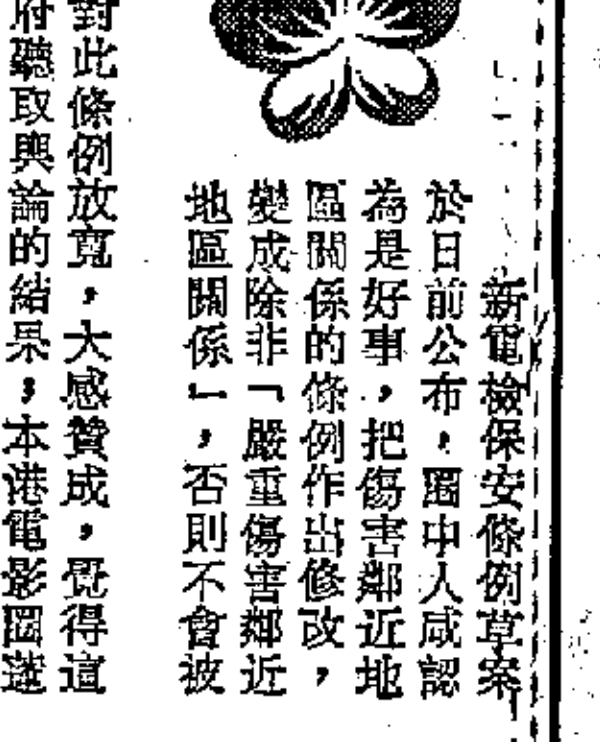 新電檢保安條例草案
於日前公布，圈中人咸認
為是好事，把傷害鄰近地
區關係的條例作出修改，
變成除非「嚴重傷害鄰近
地區關係」，否則不會被
對此條例放寬，大感贊成，覺得這
府聽取輿論的結果；本港電影圈蓬